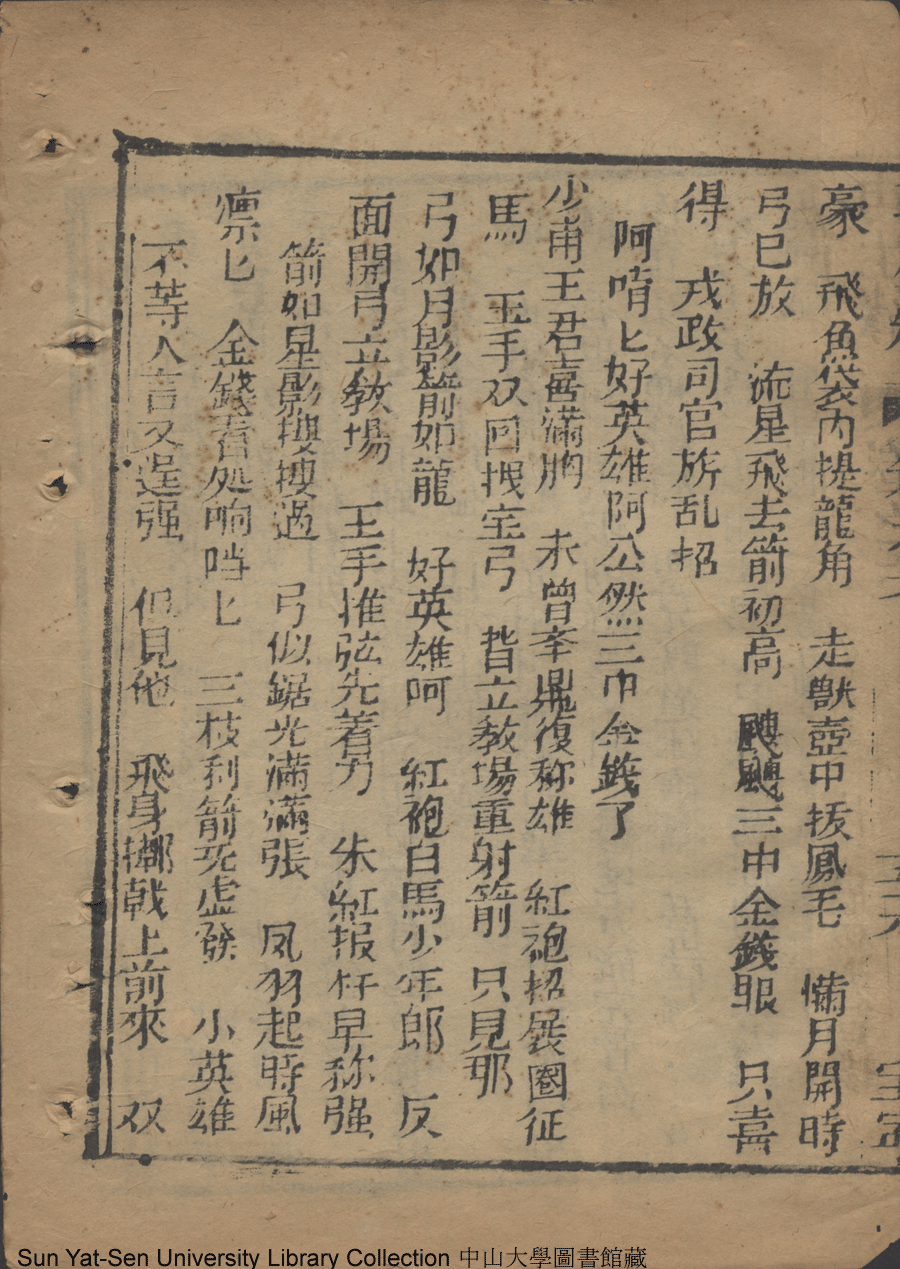 豪　飛魚袋內提龍角　走獸壺中抜鳳毛　備月開時
弓已放　流星飛去箭初高　颼颼三中金錢眼　只喜
得　戎政司官旂乱招
阿唷匕好英雄阿公然三巾金錢了
少甫王君喜滿胸　未曾奉鼎復称雄　紅袍招展圈征
馬　玉手双回拽宝弓　皆立教場重射箭　只見那
弓如月影箭如龍　好英雄呵　紅袍白馬少年郎　反
面開弓立教場　王手推弦先着力　朱紅报杆早称强
箭如星影搜搜過　弓似鋸光滿滿張　凤羽起時風
凛匕　金錢吞処响噹匕　三枝利箭无虚發　小英雄
不等人言又逞强　但見他　飛身掷戟上前來　双
Sun Yat-Sen University Library Collection 中山大學圖書館藏